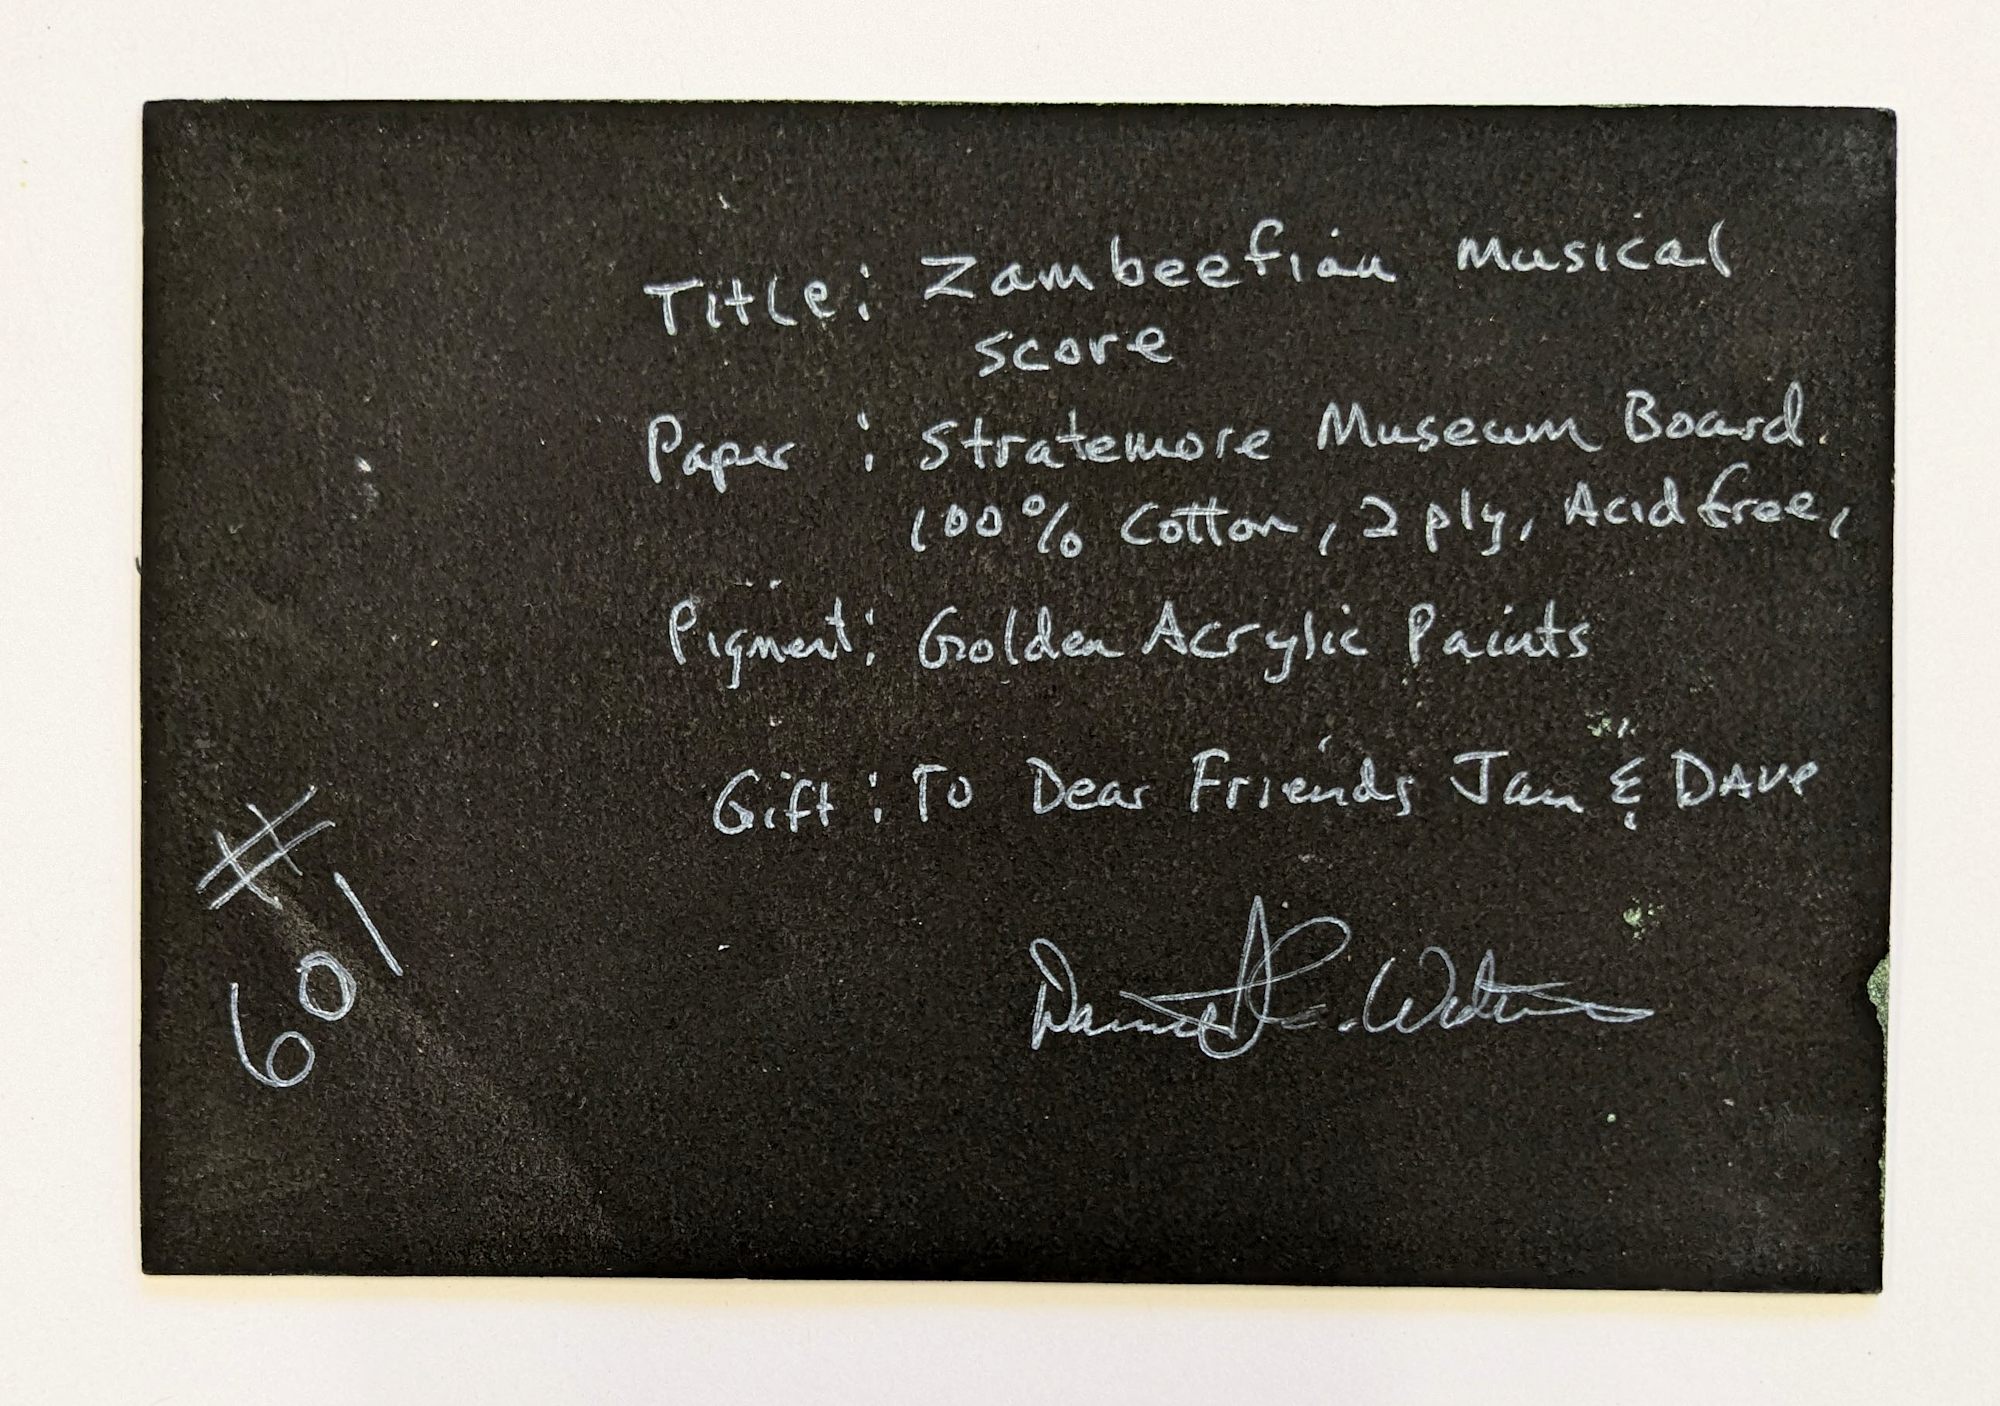 Title: Zambeefian Musical
score
Paper : Stratemore Museum Board
100% Cotton, 2 ply, Acid free,
Pigment: Golden Acrylic Paints
Gift : To Dear Friends Jan & Dave
# 601